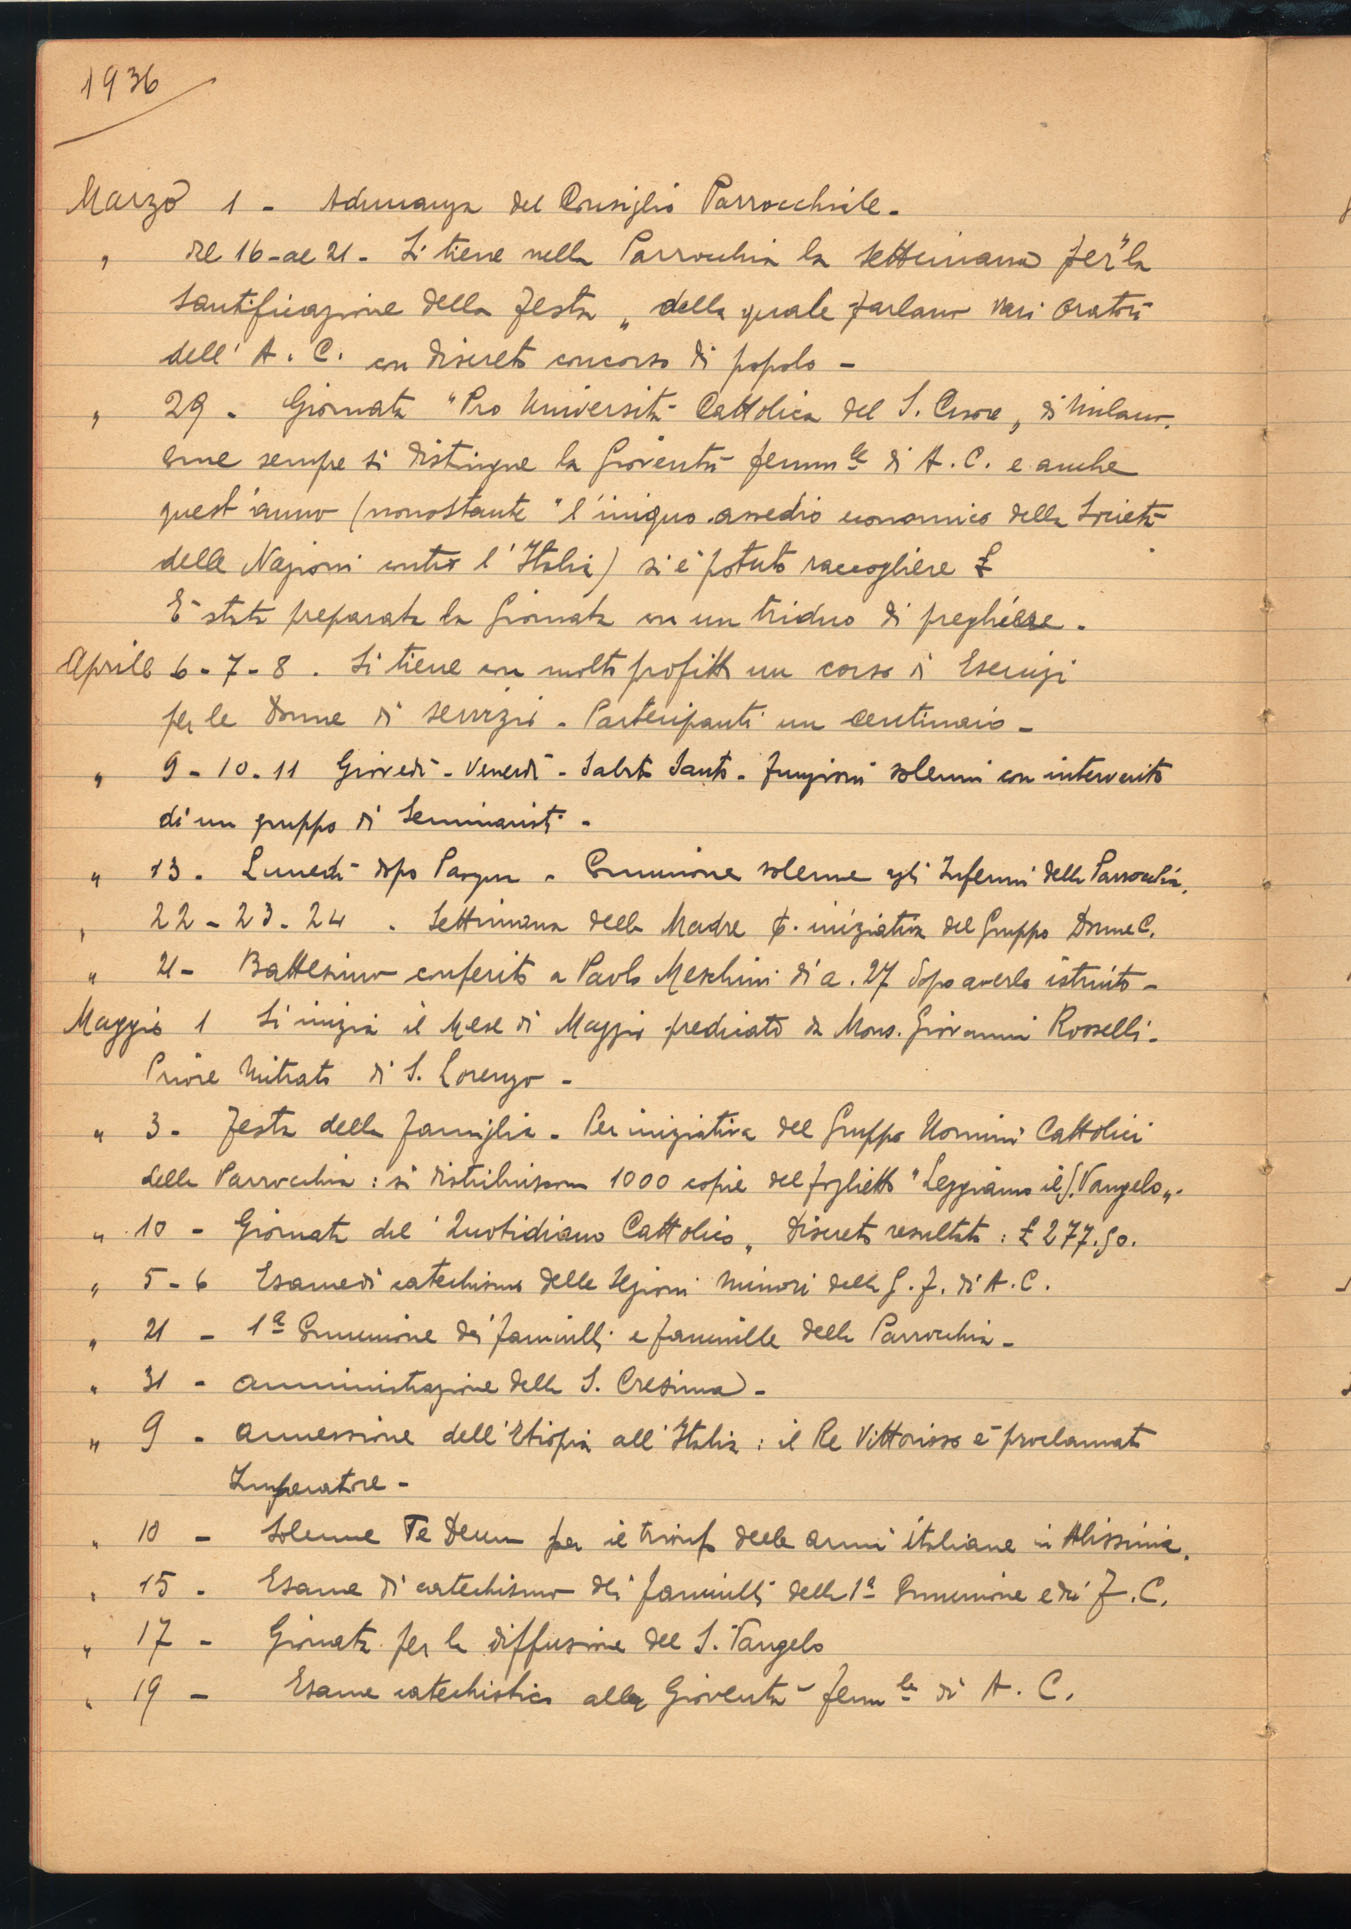 1936
Marzo 1 - Adunanza del Consiglio Parrocchiale -
" dal 16 - al 21 - Si tiene nella Parrocchia la Settimana per "la
Santificazione della festa„ della quale parlano vari oratori
dell' A. C. con discreto concorso di popolo -
" 29 - Giornata "Pro Università Cattolica del S. Cuore„ di Milano.
Come sempre si distingue la Gioventù femmle di A. C. e anche
quest'anno (nonostante "l'iniquo assedio economico della Società
delle Nazioni contro l'Italia) si è potuto raccogliere £
E' stata preparata la Giornata con un triduo di preghiere -
Aprile 6 - 7 - 8 . Si tiene con molto profitto un corso di Esercizi
per le Donne di servizio - Partecipanti un centinaio -
" 9 - 10 - 11 Giovedì - Venerdì - Sabato Santo - Funzioni solenni con intervento
di un gruppo di Seminaristi -
" 13 - Lunedì dopo Pasqua - Comunione solenne agli Infermi della Parrocchia.
" 22 - 23 - 24 . Settimana della Madre p. iniziativa del Gruppo Donne C.
" 21 - Battesimo conferito a Paolo Meschini di a. 27 dopo averlo istruito -
Maggio 1 Si inizia il Mese di Maggio predicato da Mons. Giovanni Rosselli -
Priore Mitrato di S. Lorenzo -
" 3 - Festa della famiglia - Per iniziativa del Gruppo Uomini Cattolici
della Parrocchia : si distribuiscono 1000 copie del foglietto "Leggiamo il S. Vangelo„.
" 10 - Giornata del "Quotidiano Cattolico„ Discreto resultato : £ 277.50.
" 5 - 6 Esame di catechismo delle Sezioni Minori della G. F. di A. C.
" 21 - 1a Comunione dei fanciulli e fanciulle della Parrocchia -
" 31 - Amministrazione della S. Cresima -
" 9 - Annessione dell'Etiopia all'Italia : il Re Vittorioso è proclamato
Imperatore -
" 10 - Solenne Te Deum per il trionfo delle armi italiane in Abissinia.
" 15 - Esame di catechismo dei fanciulli della 1a Comunione e dei F. C.
" 17 - Giornata per la diffusione del S. Vangelo
" 19 - Esame catechistico alla Gioventù femmle di A. C.